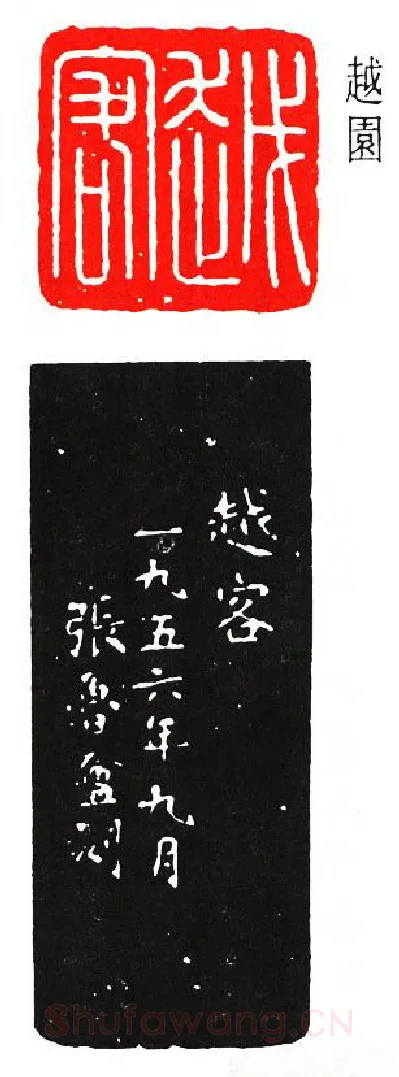 越園
越客
越客
一九五六年九月
張魯盦刻
Shufawang.CN